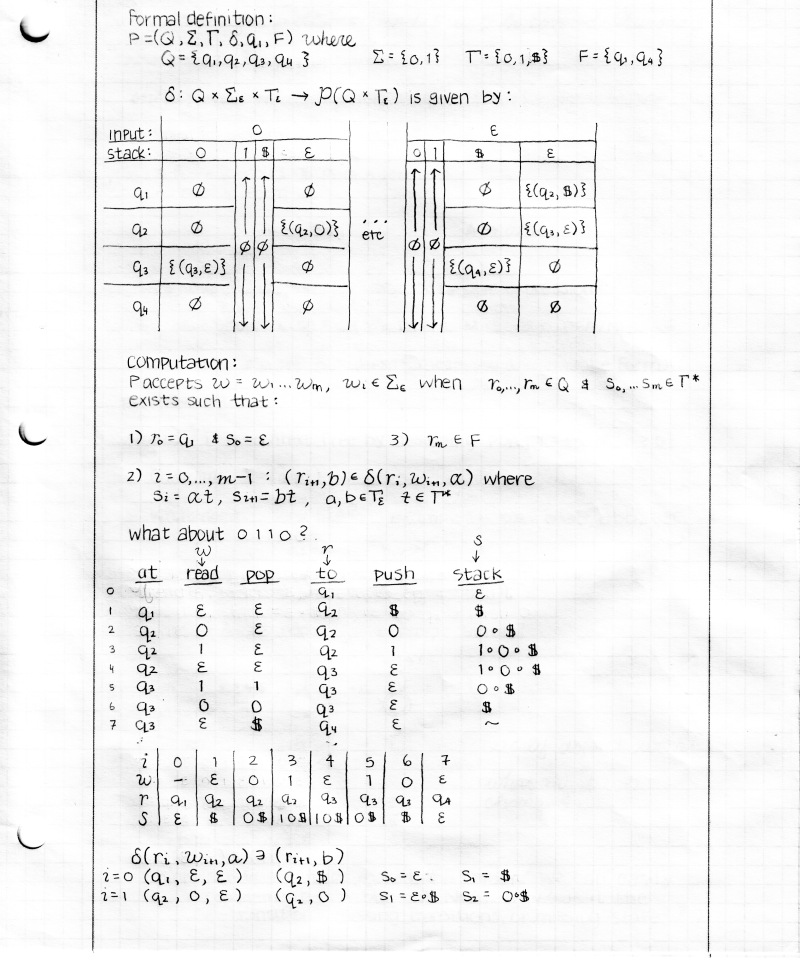 Formal definition:
P=(Q,Σ,Γ,δ,q₁,F) where
Q={q₁,q₂,q₃,q₄} Σ={0,1} Γ={0,1,$} F={q₁,q₄}
δ: Q × Σε × Γε → P(Q × Γε) is given by:
input: 0 ε
stack: 0 1 $ ε 0 1 $ ε
q₁ ∅ ∅ ∅ {(q₂,$)}
q₂ ∅ {(q₂,0)} ... ∅ {(q₃,ε)}
etc
∅ ∅ ∅ ∅
q₃ {(q₃,ε)} ∅ {(q₄,ε)} ∅
q₄ ∅ ∅ ∅ ∅
computation:
P accepts w = w₁...wₘ, wᵢ ∈ Σε when r₀,...,rₘ ∈ Q & s₀,...sₘ ∈ Γ*
exists such that:
1) r₀ = q₁ & s₀ = ε 3) rₘ ∈ F
2) i = 0,...,m-1 : (rᵢ₊₁,b) ∈ δ(rᵢ,wᵢ₊₁,a) where
sᵢ = at, sᵢ₊₁ = bt, a,b ∈ Γε t ∈ Γ*
what about 0110?
w r s
↓ ↓ ↓
at read pop to push stack
0 q₁ ε
1 q₁ ε ε q₂ $ $
2 q₂ 0 ε q₂ 0 0∘$
3 q₂ 1 ε q₂ 1 1∘0∘$
4 q₂ ε ε q₃ ε 1∘0∘$
5 q₃ 1 1 q₃ ε 0∘$
6 q₃ 0 0 q₃ ε $
7 q₃ ε $ q₄ ε ~
i 0 1 2 3 4 5 6 7
w - ε 0 1 ε 1 0 ε
r q₁ q₂ q₂ q₂ q₃ q₃ q₃ q₄
S ε $ 0$ 10$ 10$ 0$ $ ε
δ(rᵢ,wᵢ₊₁,a) ∋ (rᵢ₊₁,b)
i=0 (q₁, ε, ε) (q₂, $) S₀ = ε S₁ = $
i=1 (q₂, 0, ε) (q₂, 0) S₁ = ε∘$ S₂ = 0∘$